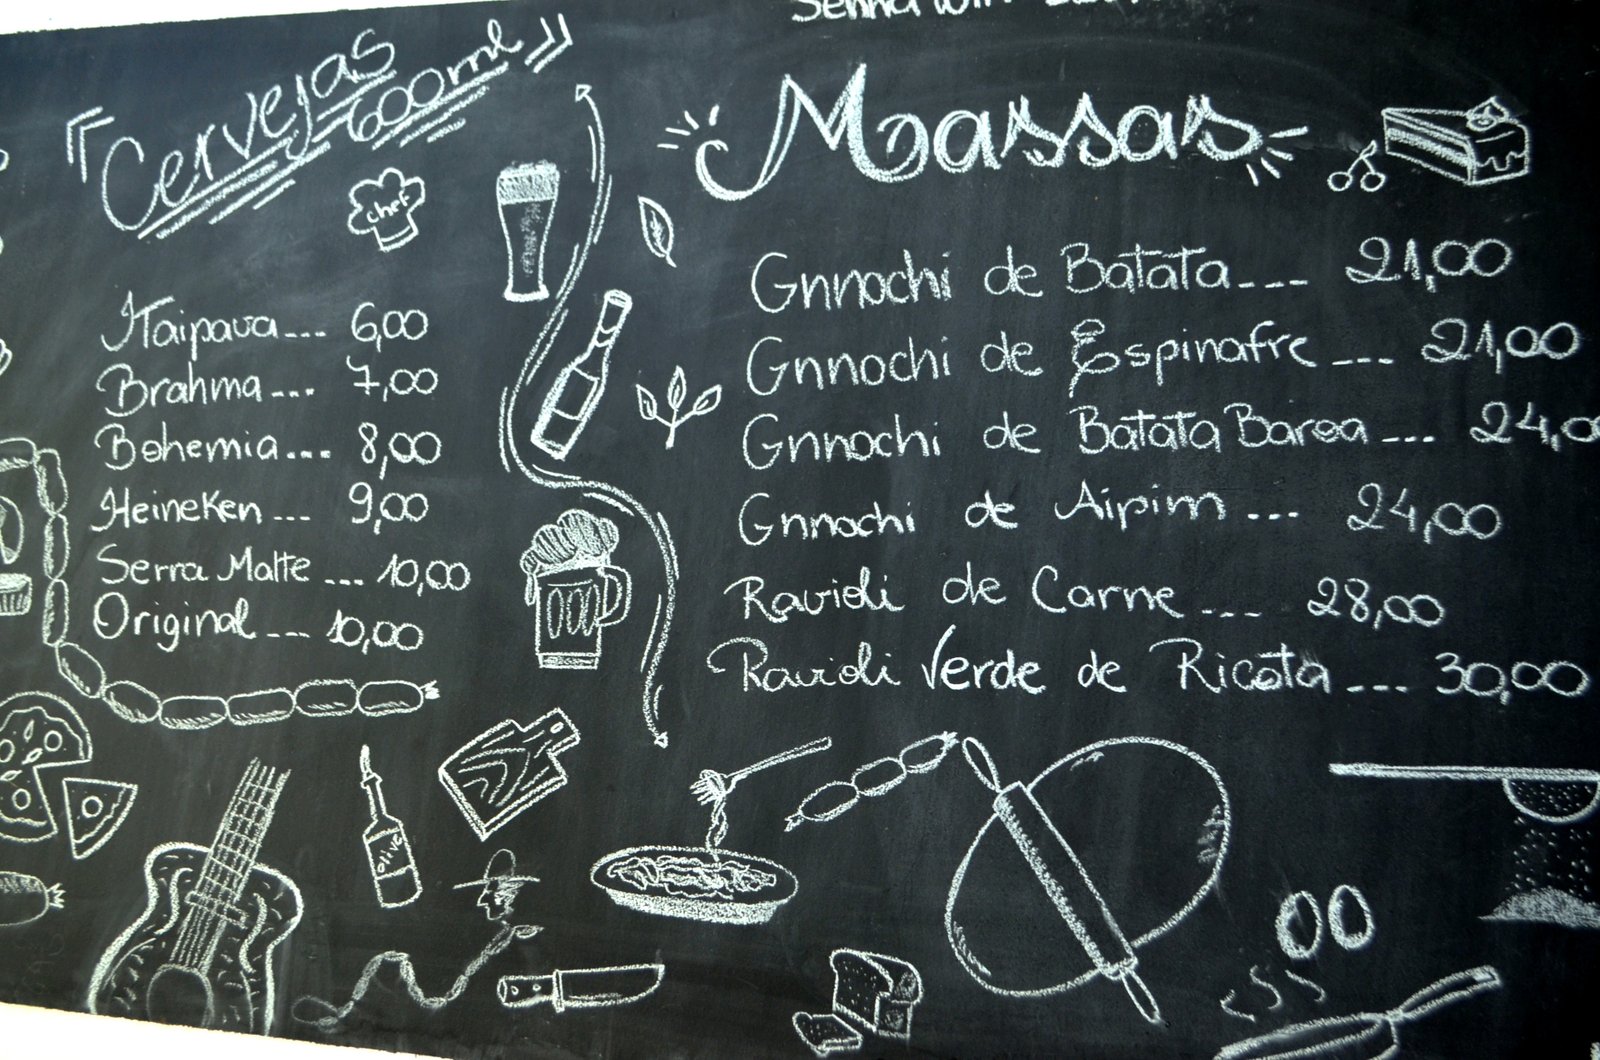 Cervejas
600ml
chef
Itaipava... 6,00
Brahma... 7,00
Bohemia... 8,00
Heineken... 9,00
Serra Malte... 10,00
Original... 10,00
olive
Massas
Gnnochi de Batata... 21,00
Gnnochi de Espinafre... 21,00
Gnnochi de Batata Baroa... 24,00
Gnnochi de Aipim... 24,00
Ravioli de Carne... 28,00
Ravioli Verde de Ricota... 30,00